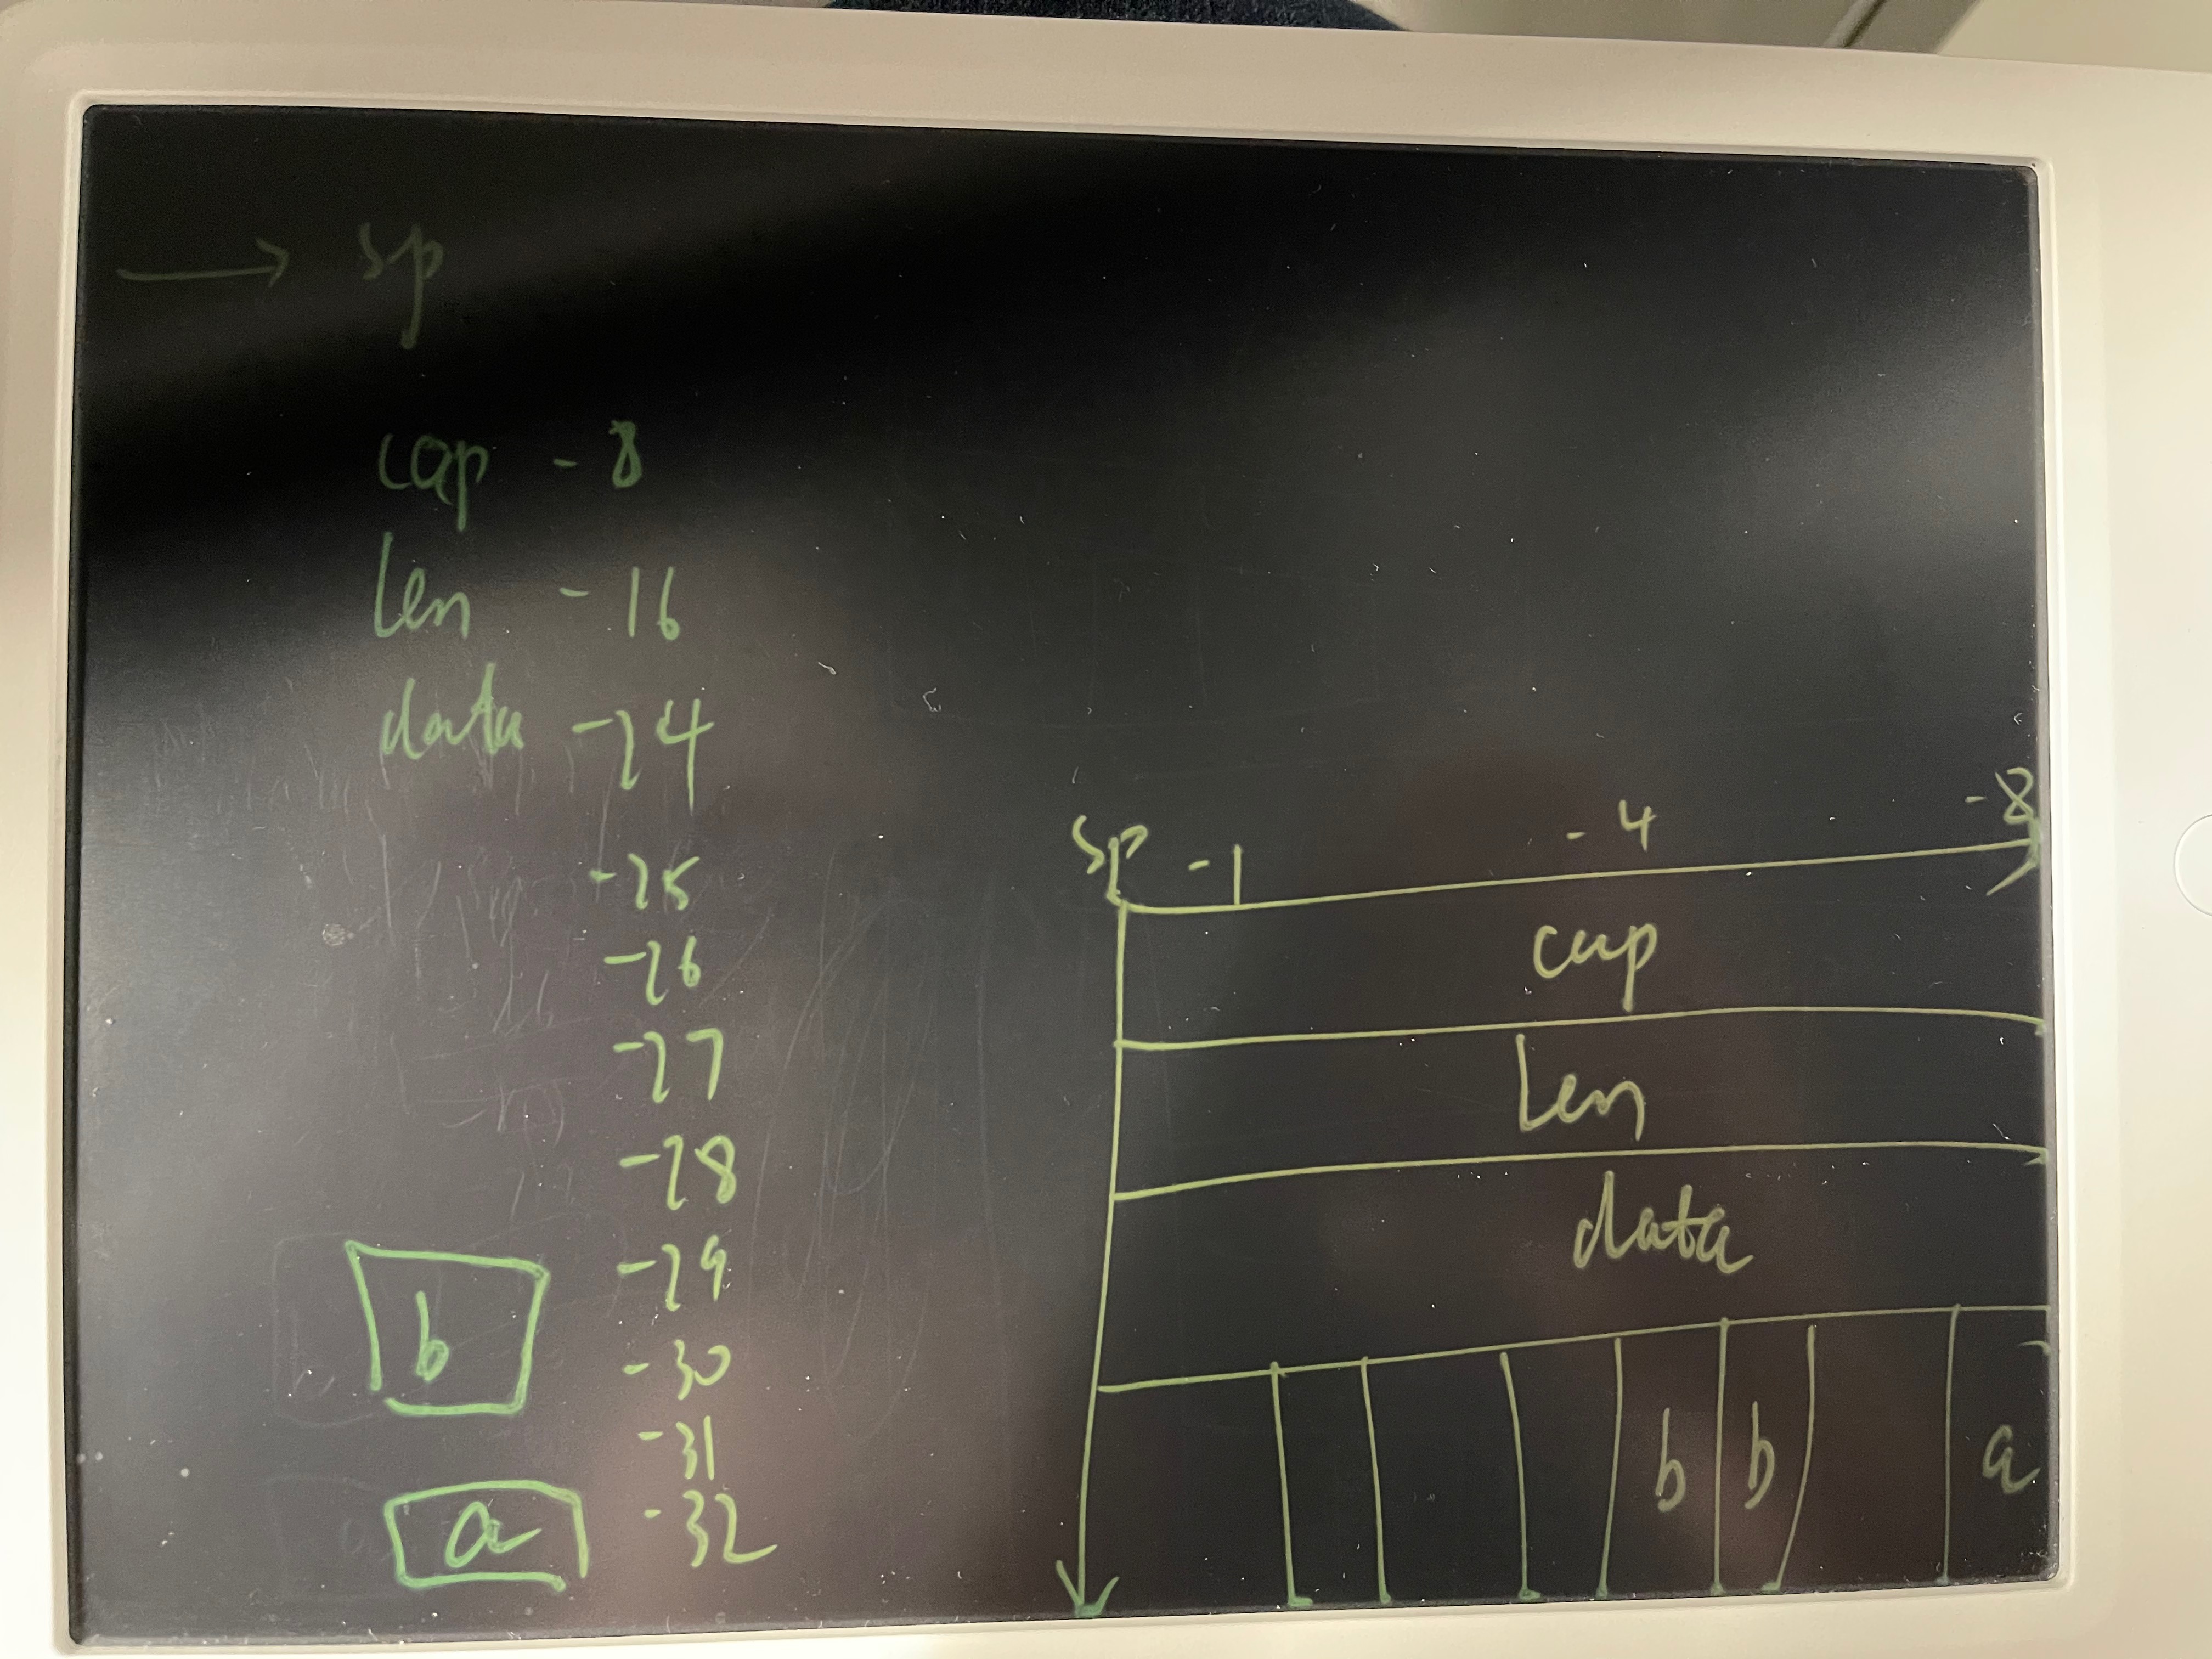 → sp
cap -8
len -16
data -24
-25
-26
-27
-28
-29
b
-30
-31
a
-32
sp -1 -4 -8
cap
len
data
b b a